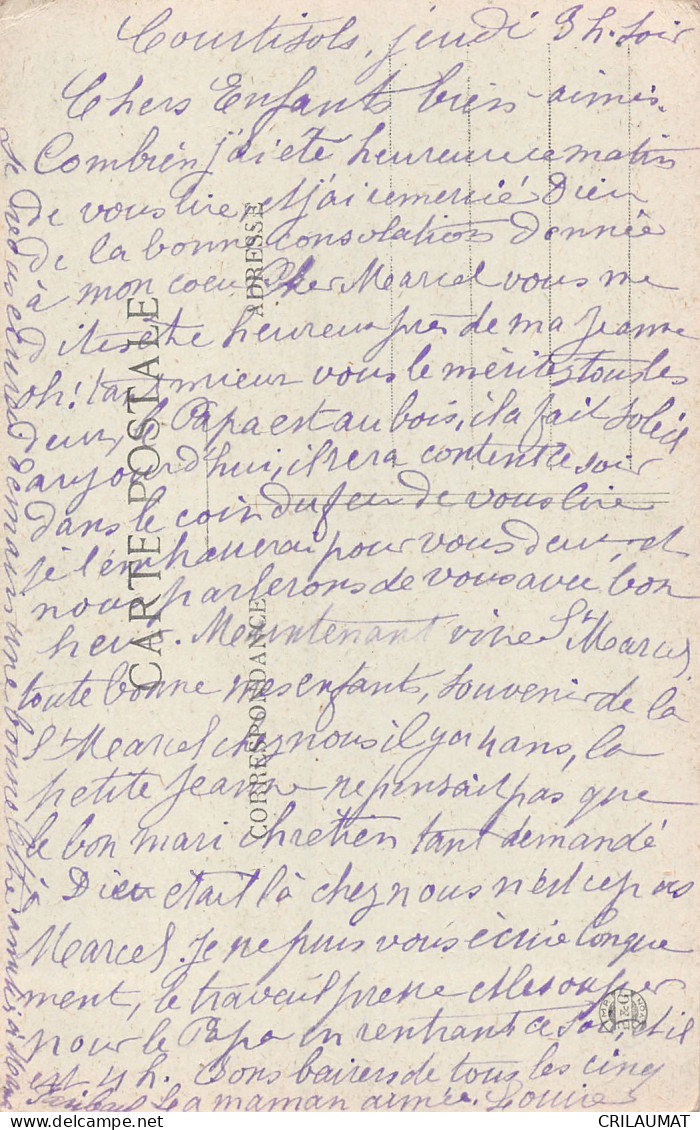 Courtisols, jeudi 3 h. soir
Chers Enfants bien-aimés.
Combien j'ai été heureuse ce matin
de vous lire, et j'ai remercié Dieu
de la bonne consolation donnée
à mon coeur. Cher Marcel vous me
dites être heureux près de ma Jeanne
oh! tant mieux vous le méritez tous les
deux, le Papa est au bois, il a fait soleil
aujourd'hui, il sera content ce soir
dans le coin du feu de vous lire
je l'embrasserai pour vous deux, et
nous parlerons de vous avec bon
heur. Maintenant vive St Marcel,
toute bonne mes enfants, souvenir de la
St Marcel chez nous il y a 4 ans, la
petite Jeanne ne pensait pas que
le bon mari chrétien tant demandé
à Dieu était là chez nous n'est ce pas
Marcel. Je ne puis vous écrire longue
ment, le travail presse et le souper
pour le Papa en rentrant ce soir, et il
est 4 h. Bons baisers de tous les cinq
la maman aimée. Louise
une bonne lettre
CARTE POSTALE
CORRESPONDANCE
ADRESSE
CRILAUMAT